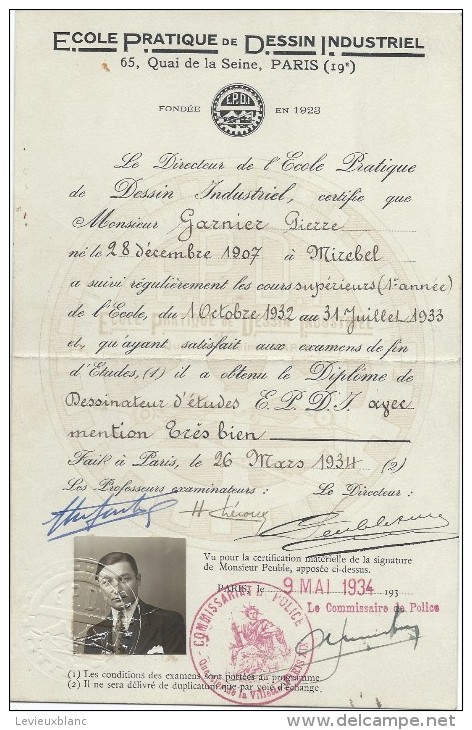 ECOLE PRATIQUE DE DESSIN INDUSTRIEL
65, Quai de la Seine, PARIS (19e)
FONDÉE E.P.D.I. EN 1923
Le Directeur de l'Ecole Pratique
de Dessin Industriel, certifie que
Monsieur Garnier Pierre
né le 28 décembre 1907 à Mirebel
a suivi régulièrement les cours supérieurs (1re année)
de l'Ecole, du 1 Octobre 1932 au 31 Juillet 1933
et, qu'ayant satisfait aux examens de fin
d'Etudes, (1) il a obtenu le Diplôme de
Dessinateur d'études E.P.D.I avec
mention Très bien
Fait à Paris, le 26 Mars 1934 (2)
Les Professeurs examinateurs : Le Directeur :
Vu pour la certification matérielle de la signature
de Monsieur Peuble, apposée ci-dessus.
PARIS, le 9 MAI 1934 193
Le Commissaire de Police
COMMISSARIAT DE POLICE
de la Villette
(1) Les conditions des examens sont portées au programme.
(2) Il ne sera délivré de duplicata que par voie d'échange.
Levieuxblanc
www.delcampe.net